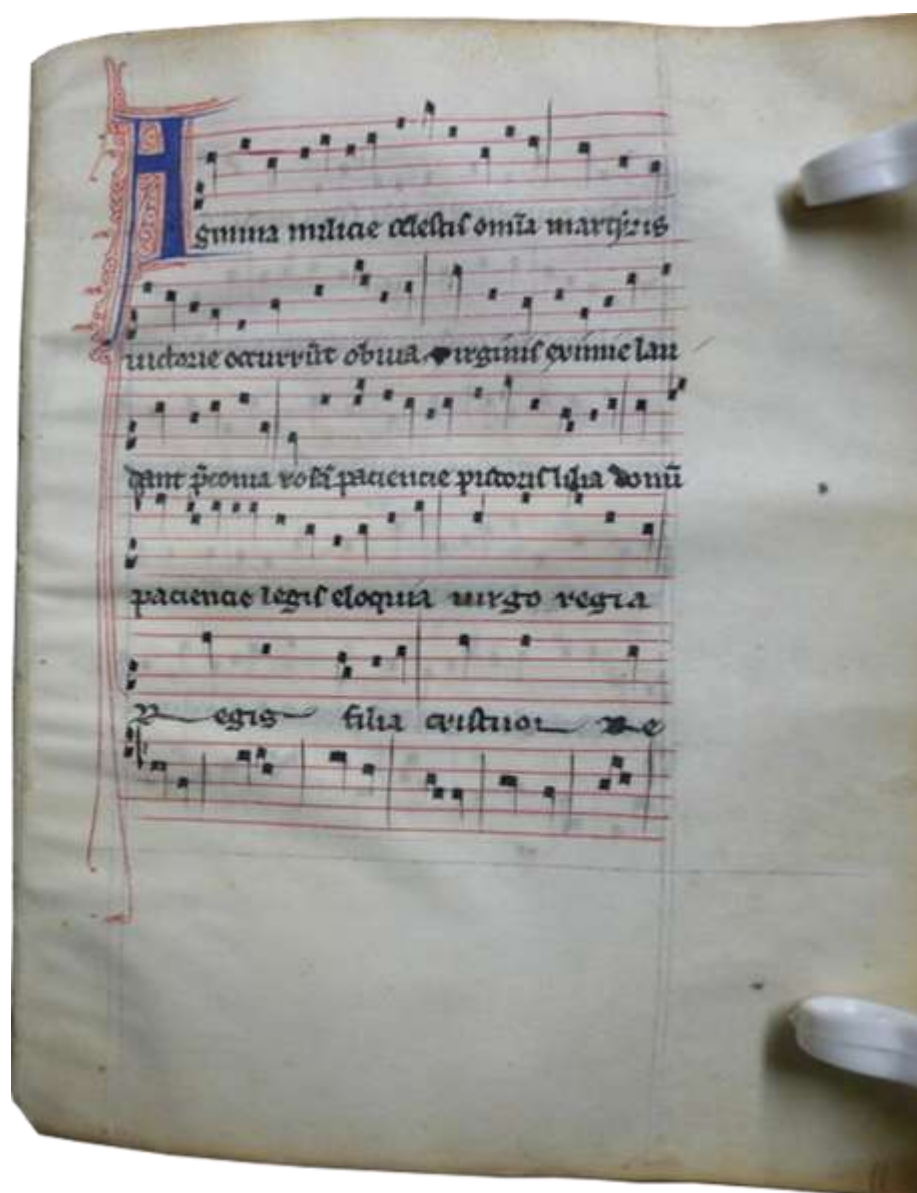 Agmina milicie celestis om̄ia martiris
uictorie occurrūt obuia virginis eximie lau
dant p̄conia rosā paciencie pictoris lilia donū
paciencie legis eloquia uirgo regia
Regis filia